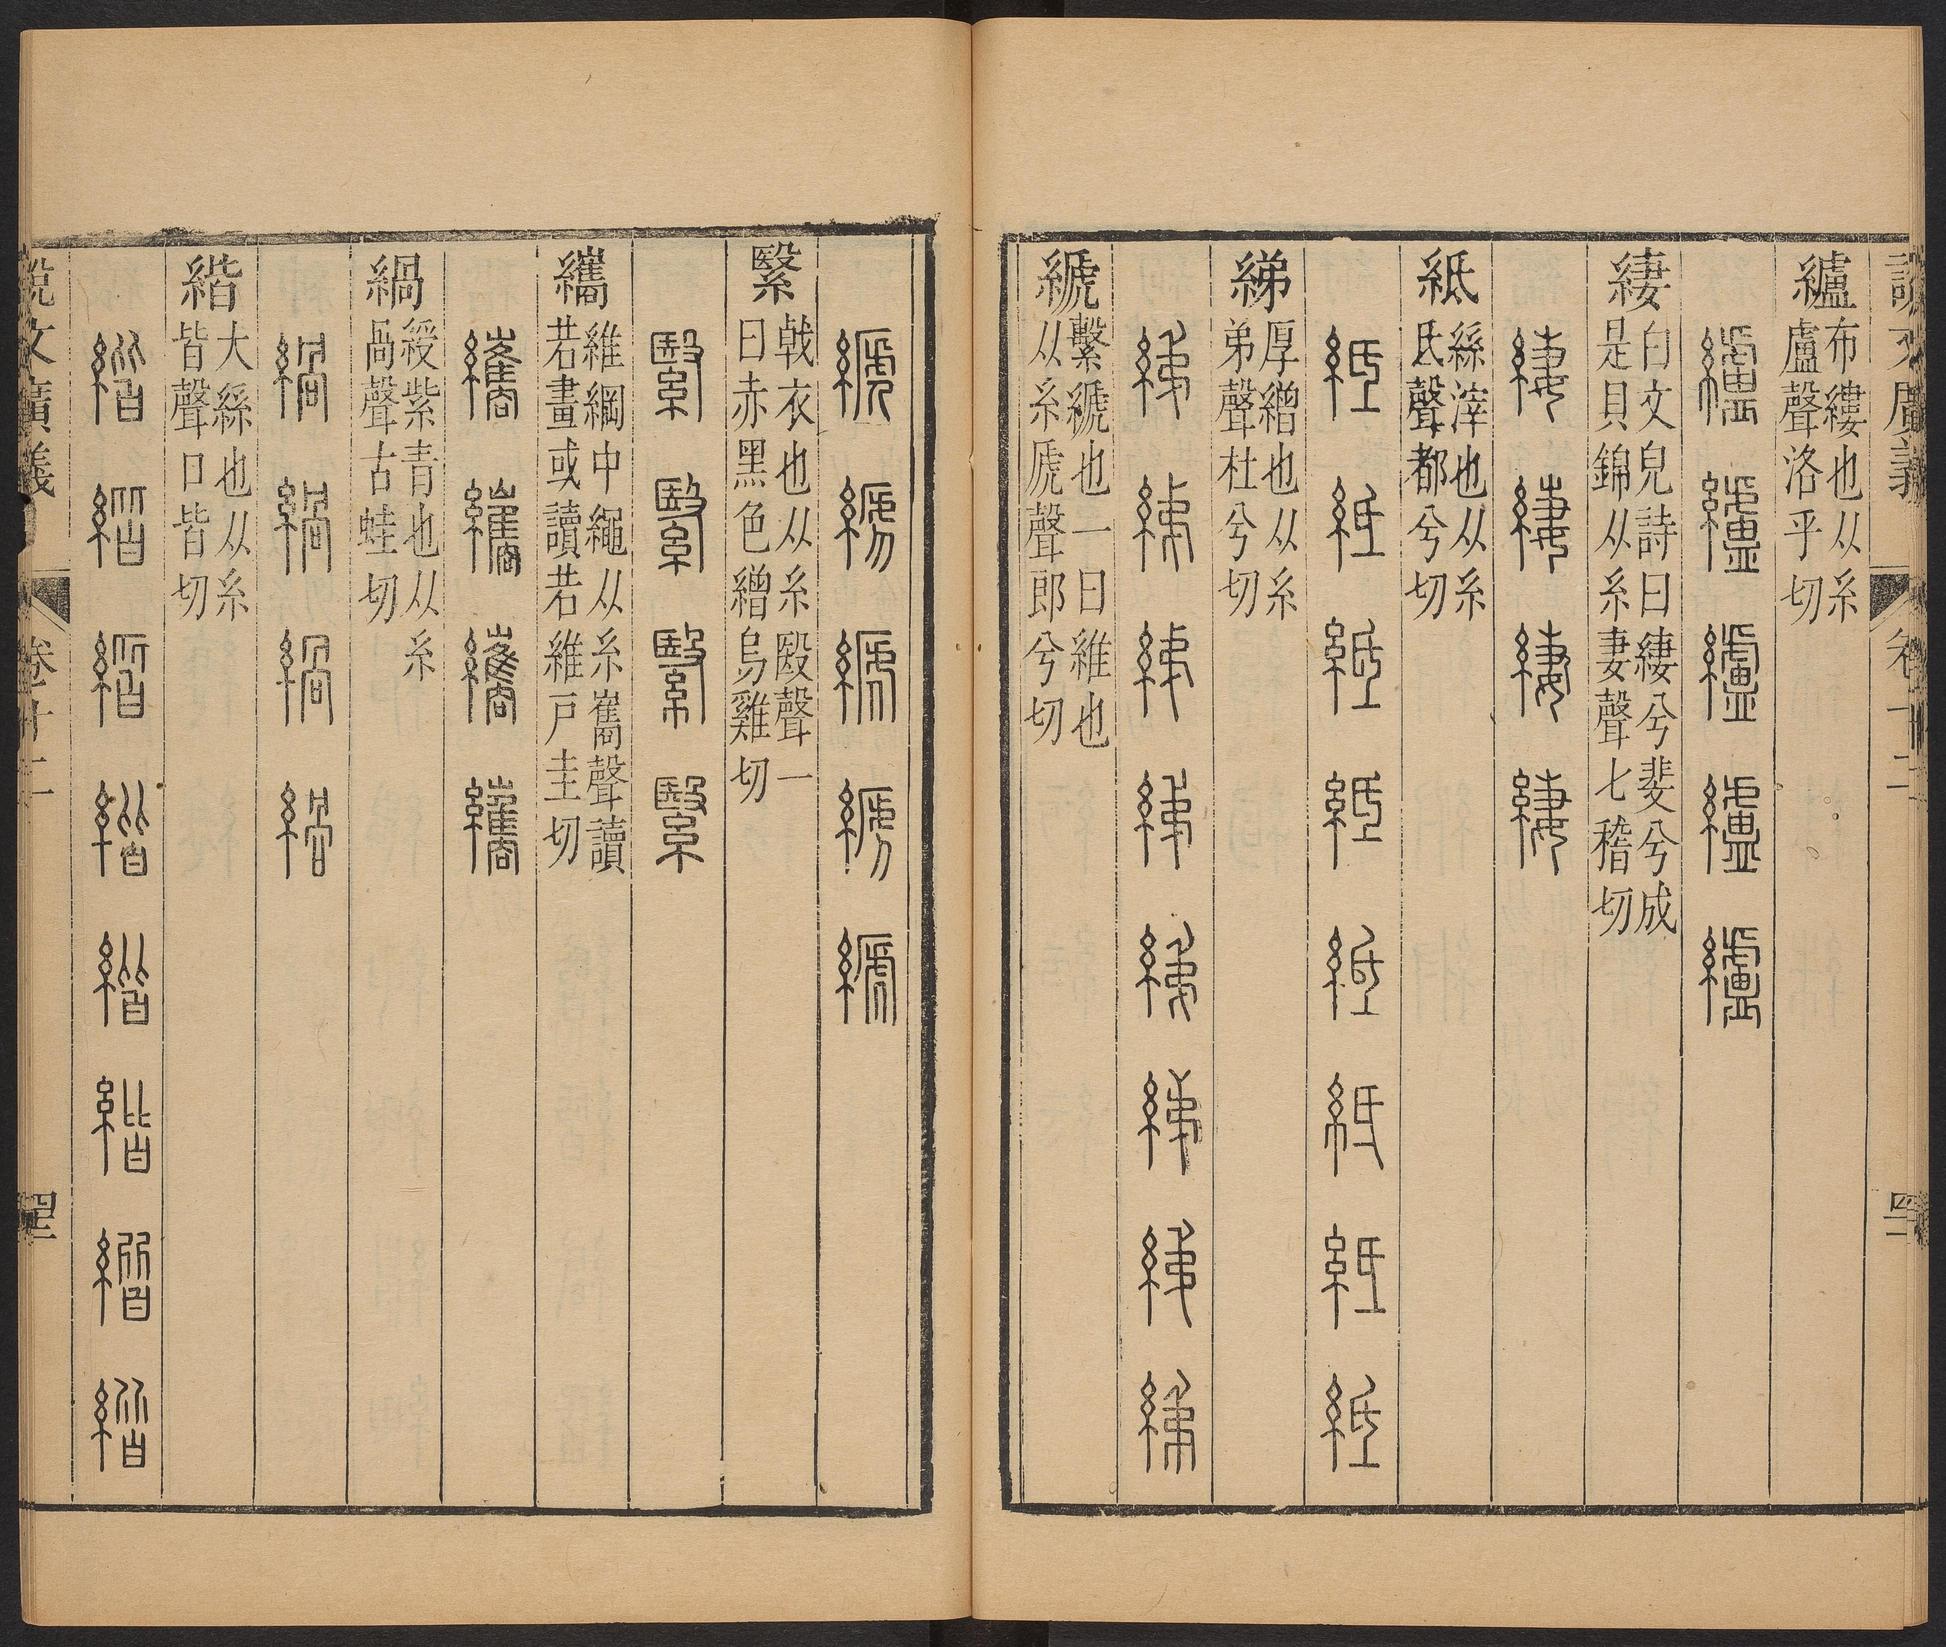 說文廣義
卷十二
纑布縷也从糸
盧聲洛乎切
纑纑纑纑纑
緀白文皃詩曰緀兮斐兮成
是貝錦从糸妻聲七稽切
緀緀緀緀
紙絲滓也从糸
氐聲都兮切
紙紙紙紙紙紙紙紙
綈厚繒也从糸
弟聲杜兮切
綈綈綈綈綈綈綈綈
繫繫也一曰維也
从糸虒聲郎兮切
繄戟衣也从糸殹聲一
曰赤黑色繒烏雞切
繄繄繄繄
纗維綱中繩从糸巂聲讀
若畫或讀若維戶圭切
纗纗纗纗
緺綬紫青也从糸
咼聲古蛙切
緺緺緺緺
緒大絲也从糸
皆聲口皆切
說文廣義
卷十二